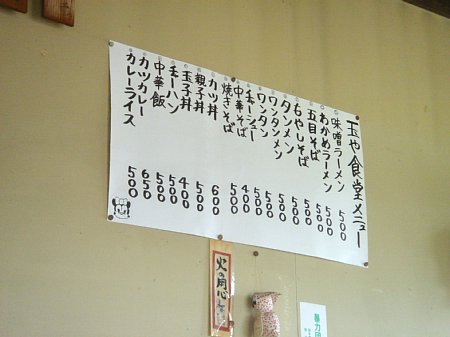 玉や食堂メニュー
味噌ラーメン 500
わかめラーメン 500
五目そば 500
もやしそば 500
タンメン 500
ワンタンメン 500
ワンタン 500
チャーシュー 500
中華そば 400
焼きそば 500
カツ丼 600
親子丼 500
玉子丼 400
チャーハン 500
中華飯 500
カツカレー 650
カレーライス 500
火の用心
暴力団